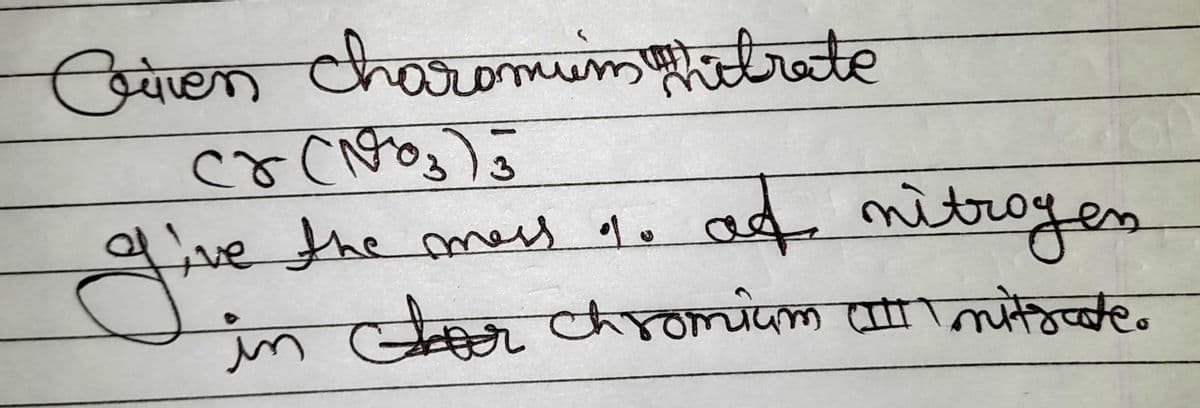 Given Charomium (III) nitrate
Cr(NO3)3
give the mass % of nitrogen
in chromium (III) nitrate.